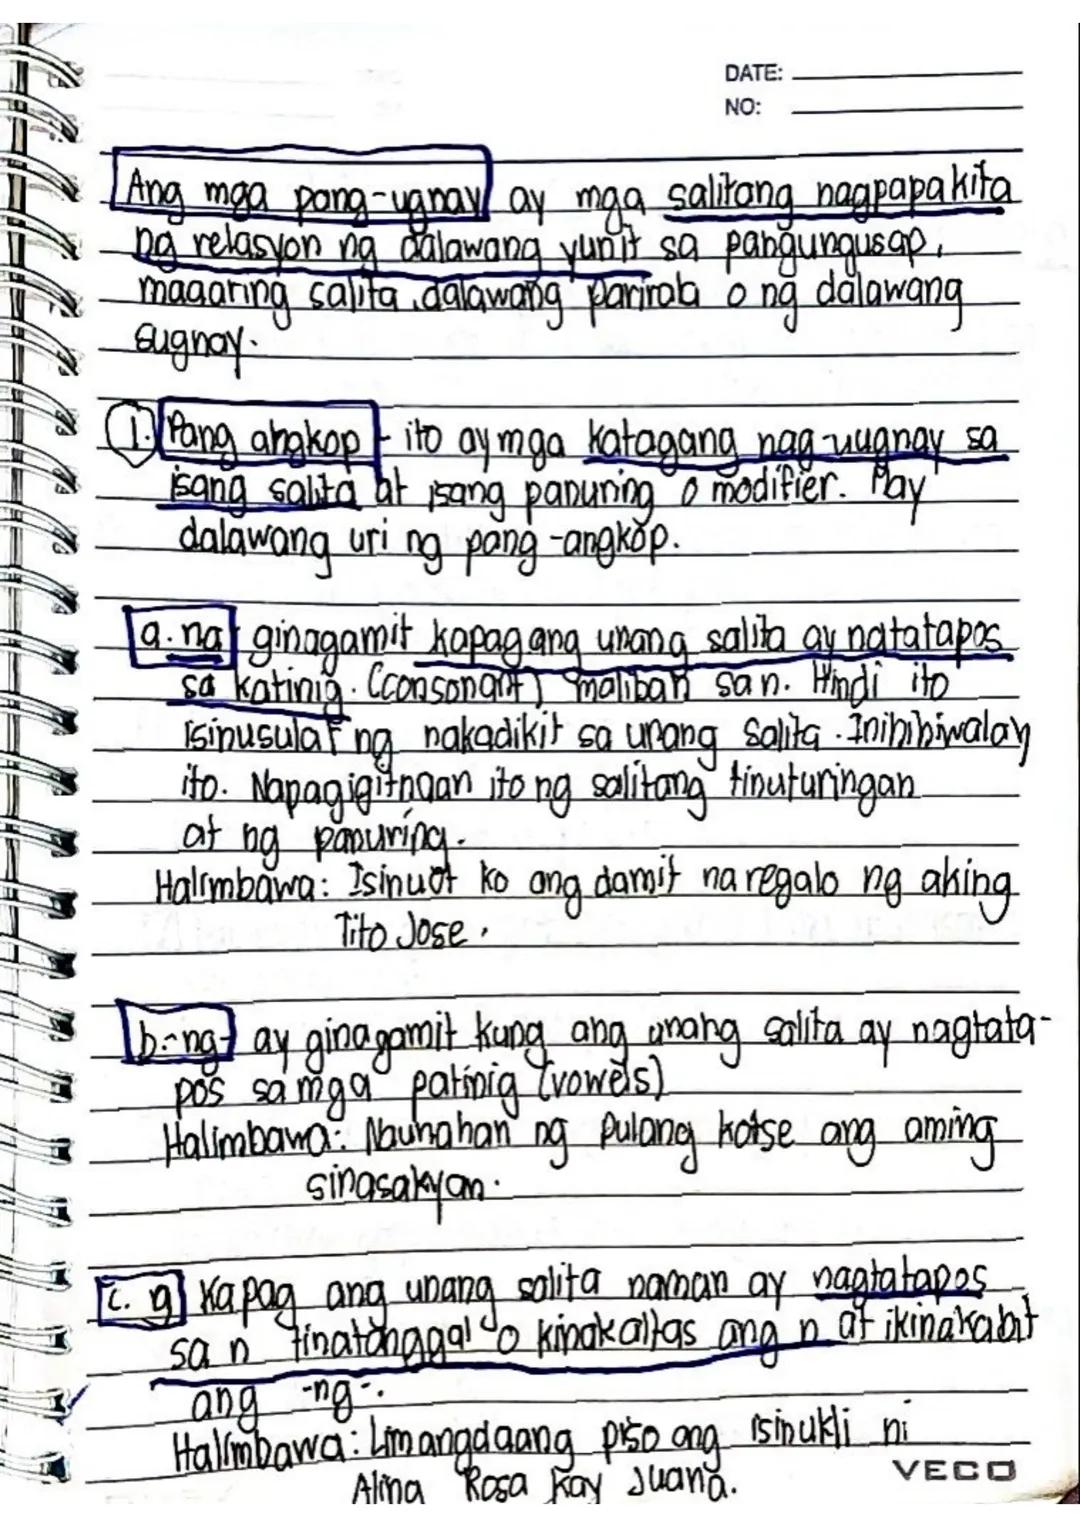 DATE:
NO:
Ang mga pang-ugnay ay mga salitang nagpapakita
ng relasyon ng dalawang yunit sa pangungusap,
maaaring salita, dalawang parirala o ng dalawang
sugnay.
1. Pang angkop - ito ay mga katagang nag-uugnay sa
isang salita at isang panuring o modifier. May
dalawang uri ng pang-angkop.
a. na - ginagamit kapag ang unang salita ay natatapos
sa katinig. (consonant) maliban sa n. Hindi ito
isinusulat ng nakadikit sa unang salita. Inihihiwalay
ito. Napagigitnaan ito ng salitang tinuturingan
at ng panuring.
Halimbawa: Isinuot ko ang damit na regalo ng aking
Tito Jose.
b. -ng- ay ginagamit kung ang unang salita ay nagtata-
pos sa mga patinig (vowels)
Halimbawa: Naunahan ng pulang kotse ang aming
sinasakyan.
c. g Kapag ang unang salita naman ay nagtatapos
sa n tinatanggal o kinakaltas ang n at ikinakabit
ang -ng-.
Halimbawa: Limangdaang piso ang isinukli ni
Aling Rosa kay Juana.
VECO